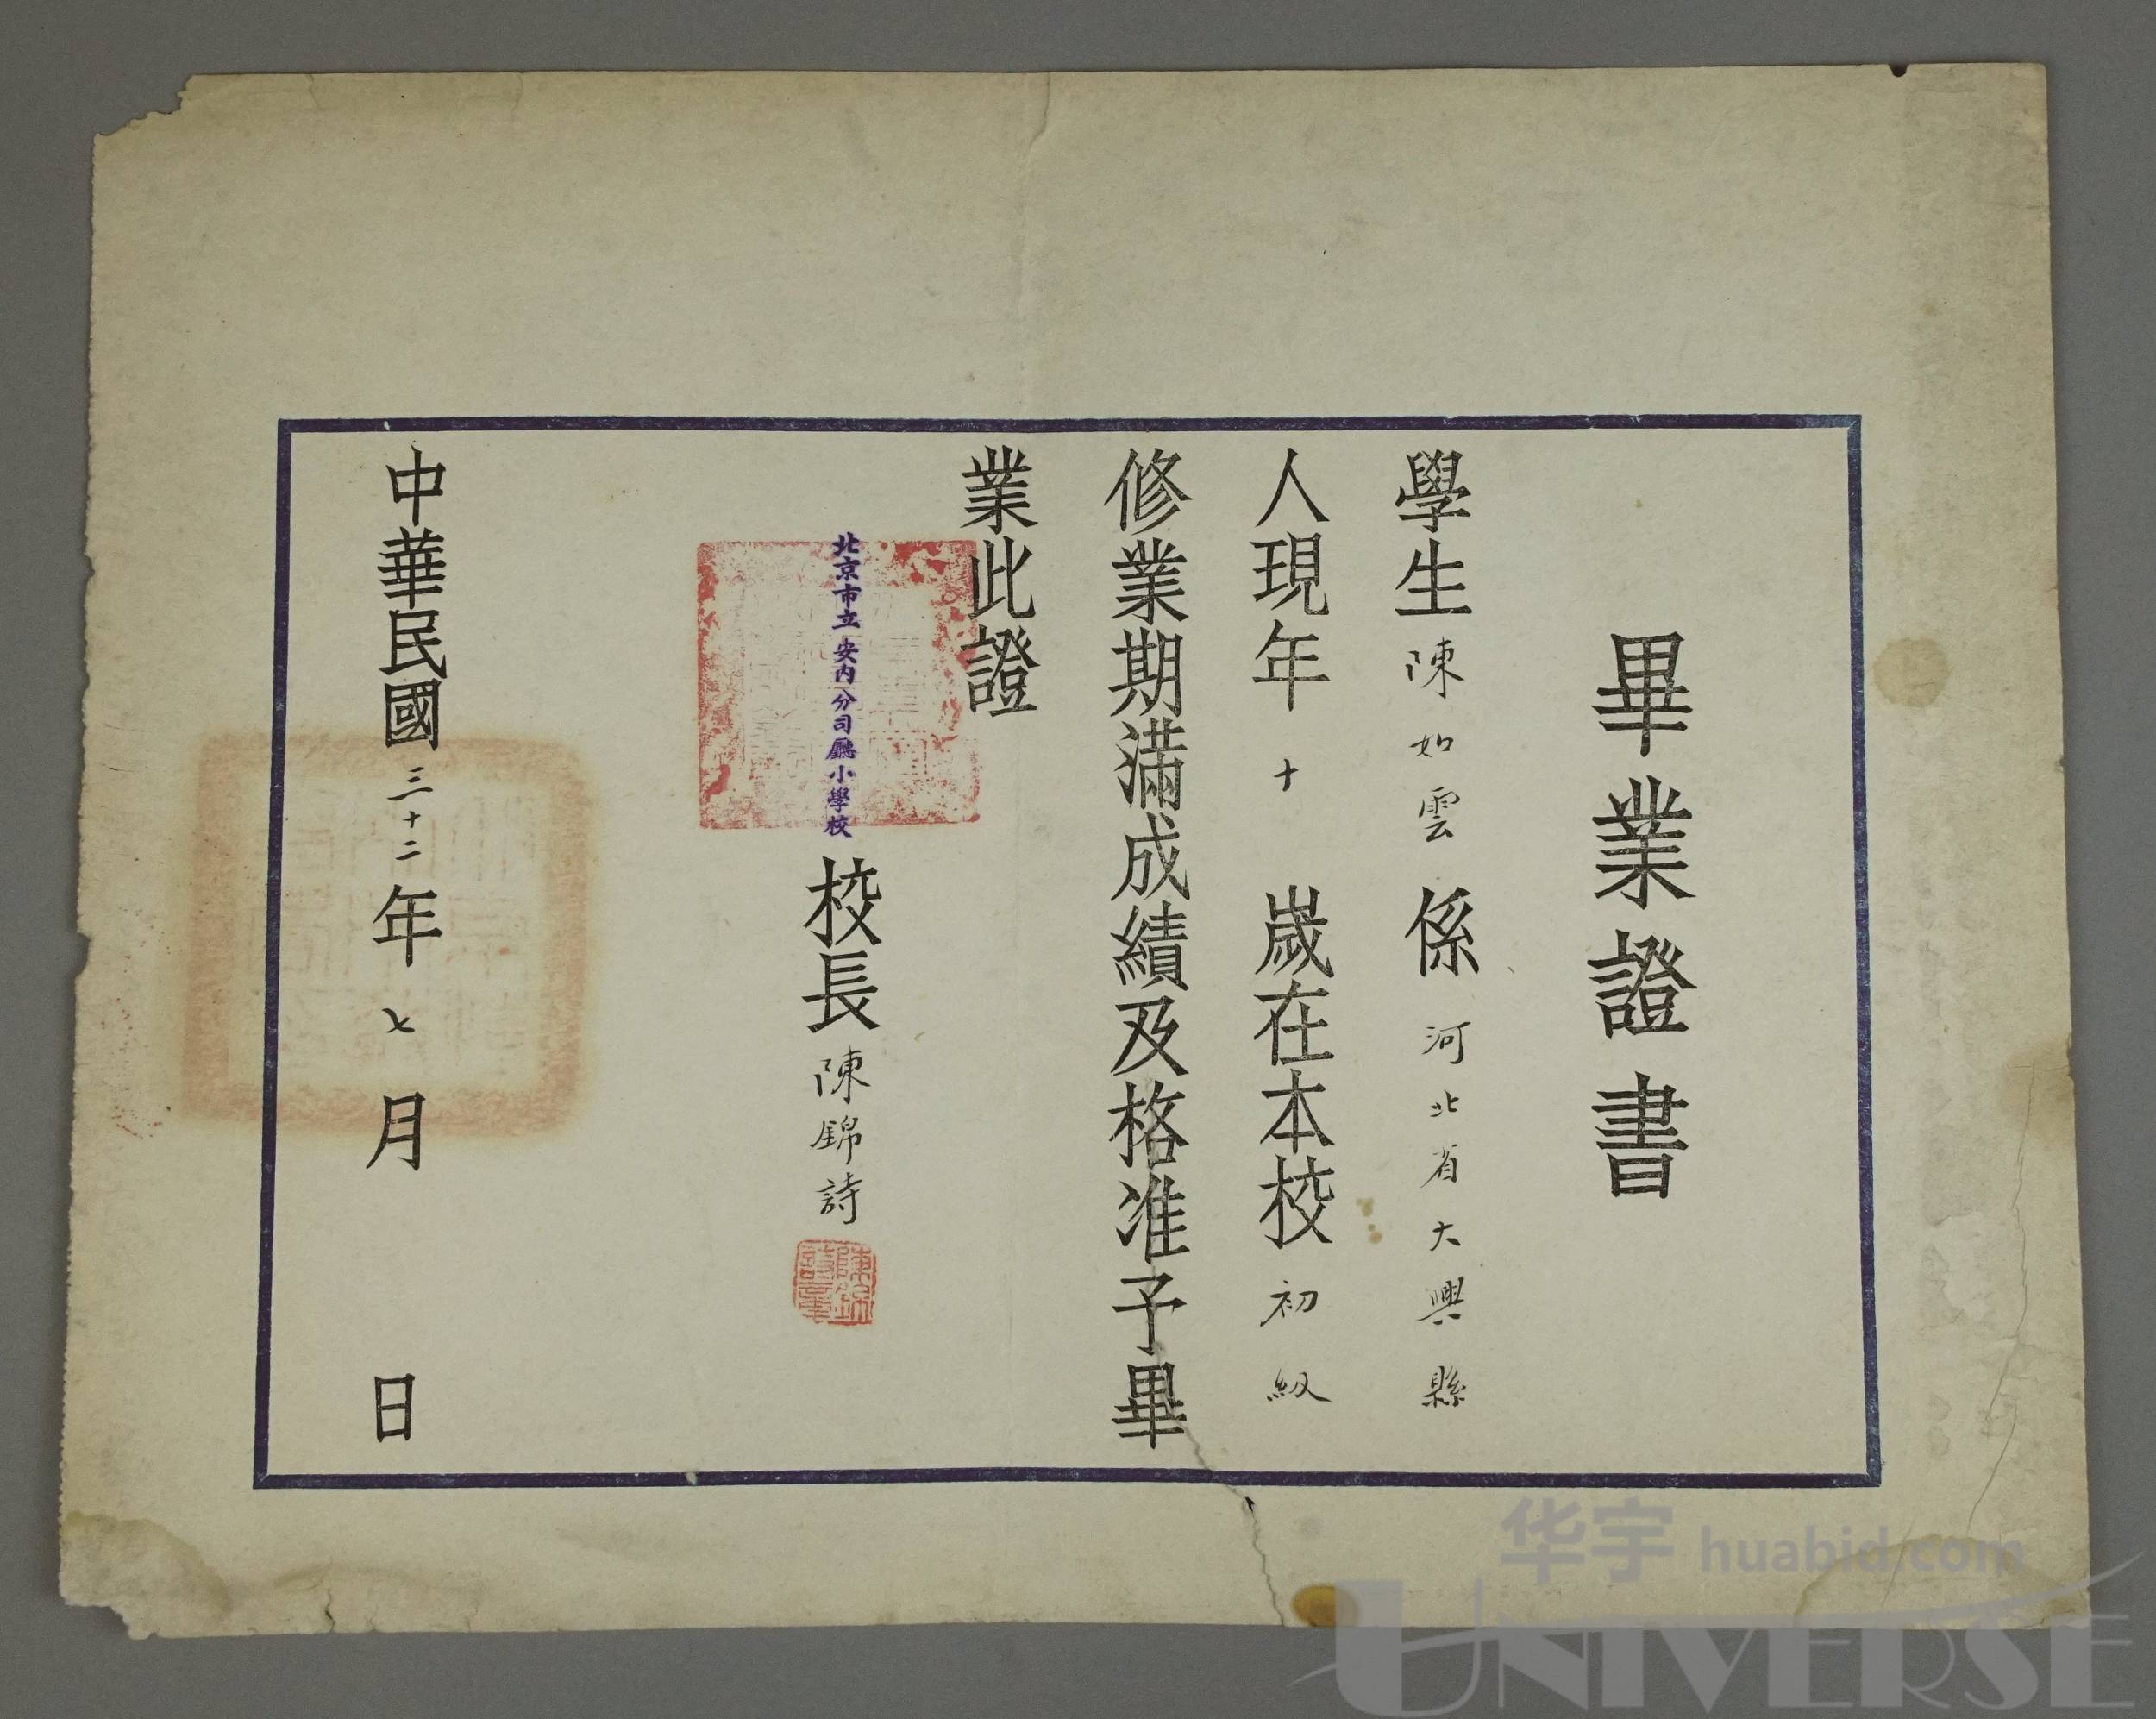 畢業證書
學生陳如雲係河北省大興縣
人現年十歲在本校初級
修業期滿成績及格准予畢
業此證
北京市立安內分司廳小學校
校長陳錦詩
陳錦詩章
中華民國三十二年七月 日
华宇 huabid.com
UNIVERSE